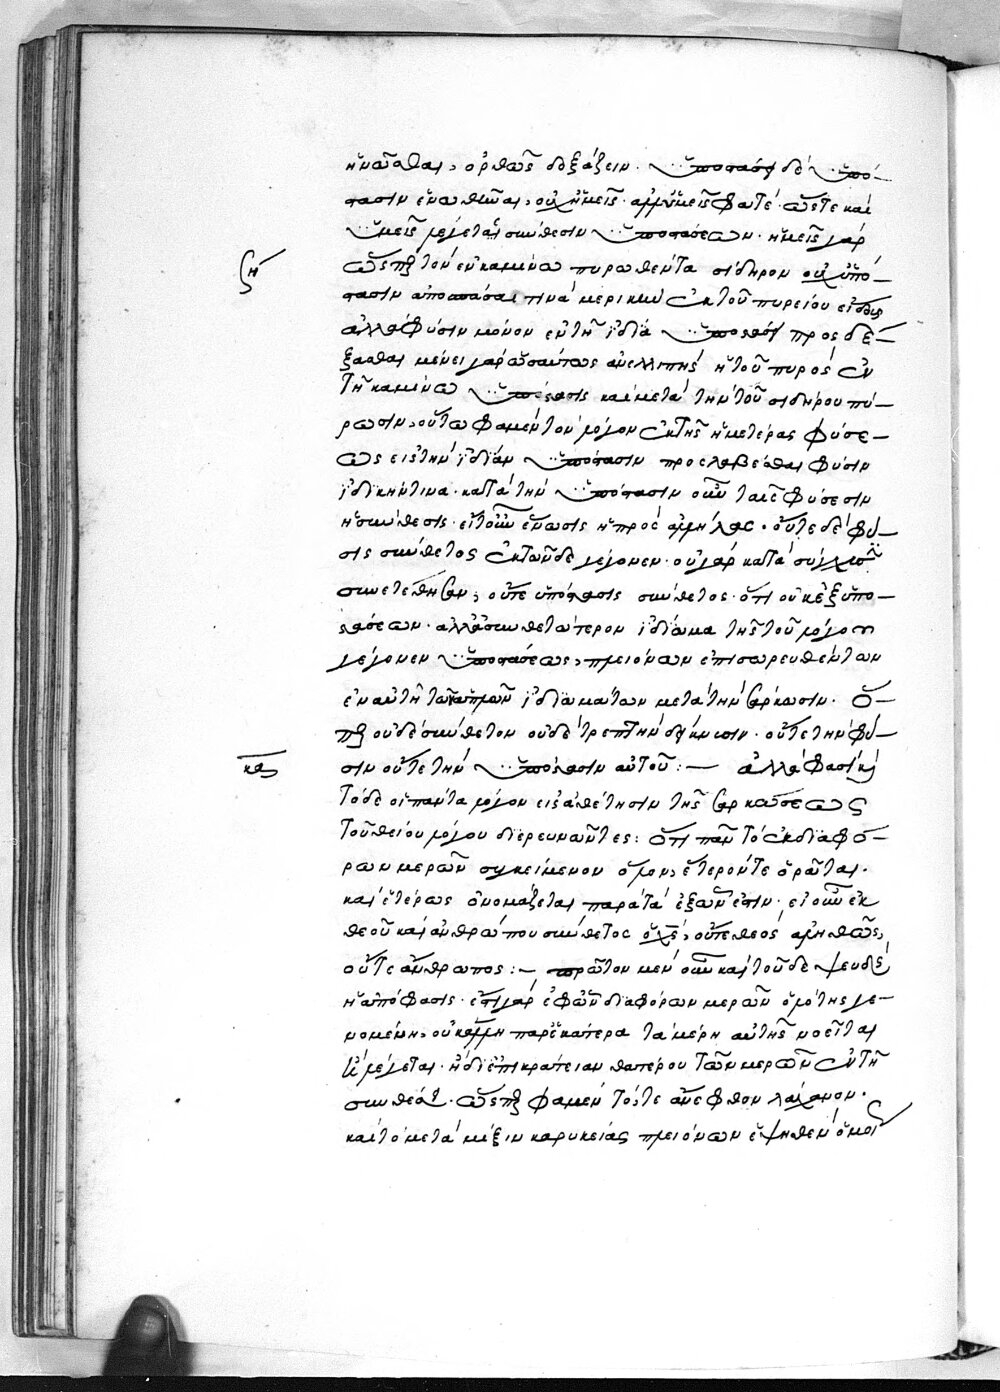 ἡνῶσθαι, ὀρθῶς δοξάζειν. ὑπόστασιν δὲ ὑπο-
στάσιν ἑνωθῆναι, οὐχ ἡμεῖς. ἀλλ' ὑμεῖς φατέ. ὥστε καὶ
ὑμεῖς λέγεται σύνθεσιν ὑποστάσεων. ἡμεῖς γὰρ
ση
ὥσπερ τὸν ἐν καμίνω πυρωθέντα σίδηρον οὐχ ὑπό-
στασιν ἀποσπάσαι τινὰ μερικὴν ἐκ τοῦ πυρείου εἴδους
ἀλλὰ φύσιν μόνον ἐν τῆ ἰδία ὑποστάσει προσδέ-
ξασθαι μένει γὰρ ὡσαύτως ἀνελλιπὴς ἡ τοῦ πυρὸς ἐν
τῆ καμίνω ὑπόστασις καὶ μετὰ τὴν τοῦ σιδήρου πύ-
ρωσιν, οὕτω φαμὲν τὸν λόγον ἐκ τῆς ἡμετέρας φύσε-
ως εἰς τὴν ἰδίαν ὑπόστασιν προσλαβέσθαι φύσιν
ἰδικήν τινα. κατὰ τὴν ὑπόστασιν οὖν ταῖς φύσεσιν
ἡ σύνθεσις. εἴτουν ἕνωσις ἡ πρὸς ἀλλήλας. οὔτε δὲ φύ-
σις σύνθετος ἐκ τῶνδε γέγονεν. οὐ γὰρ κατὰ σύγχυσιν
συνετέθησαν, οὔτε ὑπόστασις σύνθετος. ὅτι οὐκ ἐξ ὑπο-
στάσεων. ἀλλὰ συνθετώτερον ἰδίωμα τῆς τοῦ λόγου
γέγονεν ὑποστάσεως, πλειόνων ἐπισωρευθέντων
ἐν αὐτῆ τῶν ἁπλῶν ἰδιωμάτων μετὰ τὴν σάρκωσιν. ὅ-
περ οὐδὲ σύνθετον οὐδὲ τρεπτὴν δείκνυσιν. οὔτε τὴν φύ-
σιν οὔτε τὴν ὑπόστασιν αὐτοῦ: — ἀλλὰ φασὶ κἀ
τόδε οἱ πάντα λόγον εἰς ἀθέτησιν τῆς σαρκώσεως
τοῦ θείου λόγου διερευνῶντες: ὅτι πᾶν τὸ ἐκ διαφό-
ρων μερῶν συγκείμενον ὅλον, ἕτερόν τε ὁρᾶται.
καὶ ἑτέρως ὀνομάζεται παρὰ τὰ ἐξ ὧν ἐστιν. εἰ οὖν ἐκ
θεοῦ καὶ ἀνθρώπου σύνθετος ὁ χς, οὔτε θεὸς ἀληθῶς,
οὔτε ἄνθρωπος: — πρῶτον μὲν οὖν καὶ τοῦδε ψευδὴς
ἡ ἀπόφασις. ἐπὶ γὰρ ἐφ' ὧν διαφόρων μερῶν ὁλότης γε-
νομένη, οὐκ ἄλλη παρ' ἑκάτερα τὰ μέρη αὐτῆς νοεῖται
καὶ λέγεται. ἢ δι' ἐπικράτειαν θατέρου τῶν μερῶν ἐν τῆ
συνθέσει. ὥσπερ φαμὲν τό, τε ἄνεφθον λάχανον.
καὶ τὸ μετὰ μίξιν καρυκείας πλειόνων ἐψηθὲν ὁμοί